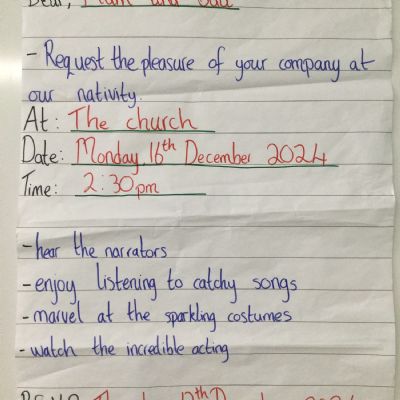 Dear, Mam and Dad
- Request the pleasure of your company at
our nativity.
At: The church
Date: Monday 16th December 2024
Time: 2:30pm
- hear the narrators
- enjoy listening to catchy songs
- marvel at the sparkling costumes
- watch the incredible acting